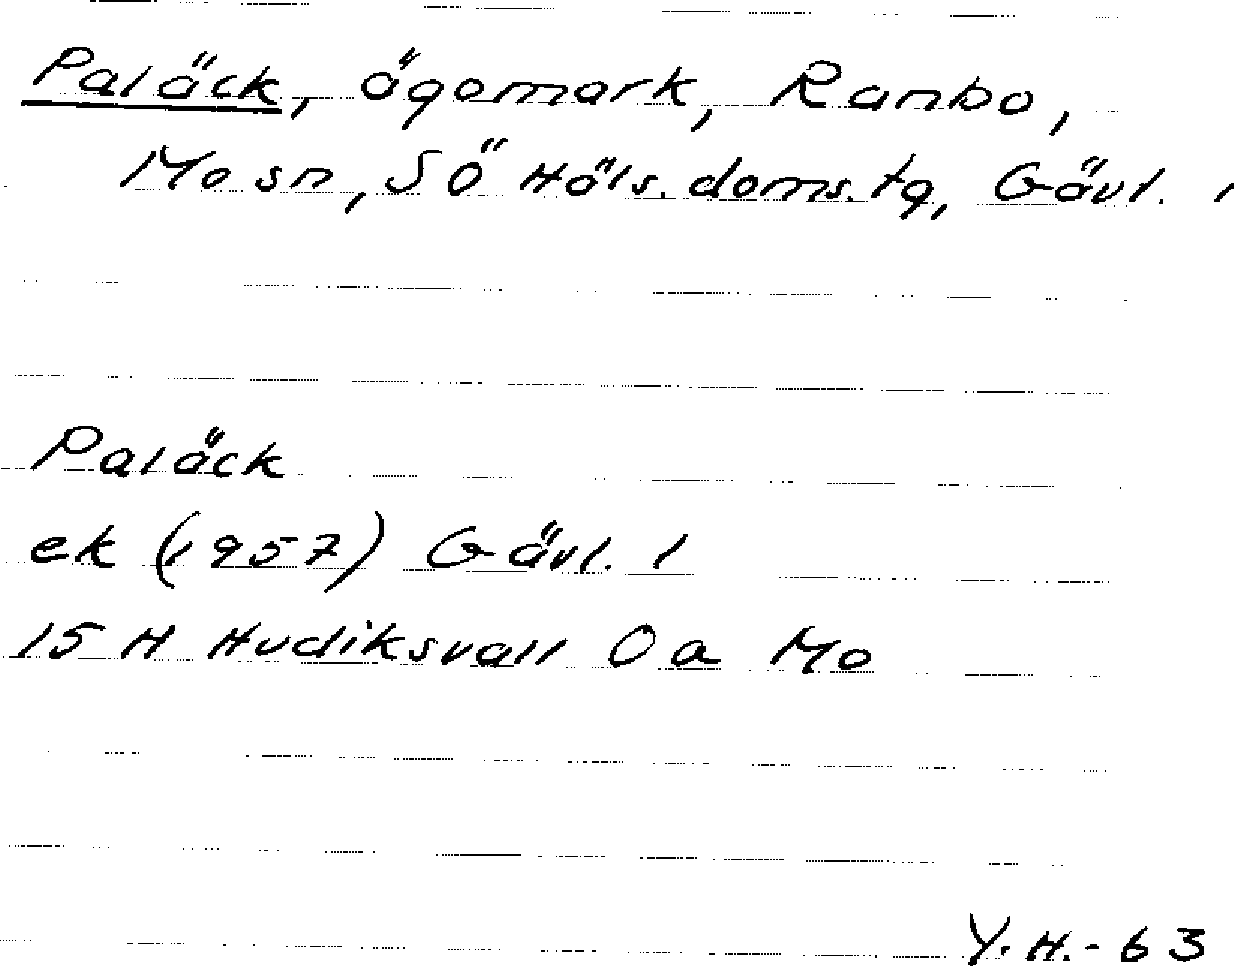 Paläck, ägomark, Ranbo,
Mo sn, SÖ Häls. doms. tg, Gävl. l
Paläck
ek (1957) Gävl. l
15 H Hudiksvall 0 a Mo
Y.H.-63